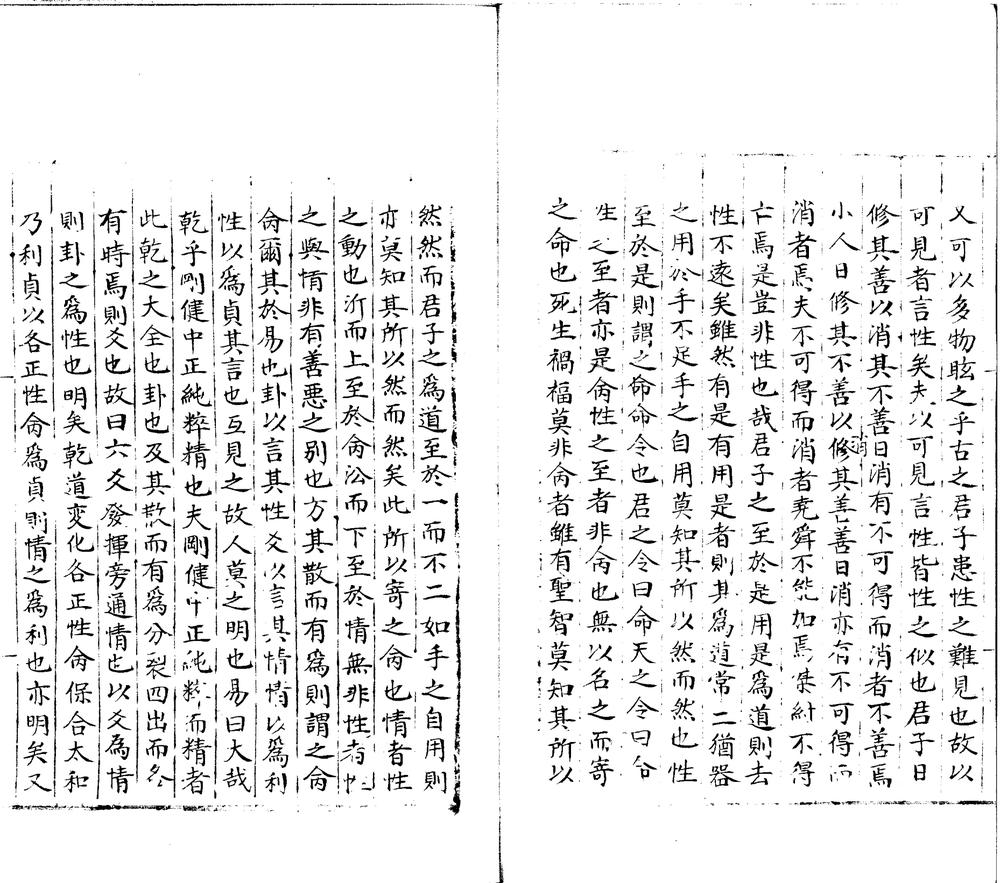 又可以多物眩之乎古之君子患性之難見也故以
可見者言性矣夫以可見言性皆性之似也君子日
修其善以消其不善日消有不可得而消者不善焉
小人日修其不善以修消其善善日消亦有不可得而
消者焉夫不可得而消者堯舜不能加焉桀紂不得
亡焉是豈非性也哉君子之至於是用是為道則去
性不遠矣雖然有是有用是者則其為道常二猶器
之用於手不足手之自用莫知其所以然而然也性
至於是則謂之命命令也君之令曰命天之令曰命
性之至者亦是命性之至者非命也無以名之而寄
之命也死生禍福莫非命者雖有聖智莫知其所以
然然而君子之為道至於一而不二如手之自用則
亦莫知其所以然而然矣此所以寄之命也情者性
之動也泝而上至於命沿而下至於情無非性者性
之與情非有善惡之別也方其散而有為則謂之命
命爾其於易也卦以言其性爻以言其情情以為利
性以為貞其言也互見之故人莫之明也易曰大哉
乾乎剛健中正純粹精也夫剛健中正純粹而精者
此乾之大全也卦也及其散而有為分裂四出而各
有時焉則爻也故曰六爻發揮旁通情也以爻為情
則卦之為性也明矣乾道変化各正性命保合太和
乃利貞以各正性命為貞則情之為利也亦明矣又